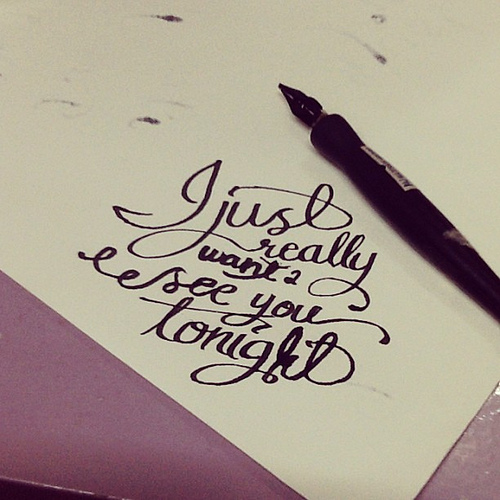 I just
really
want 2
see you
tonight